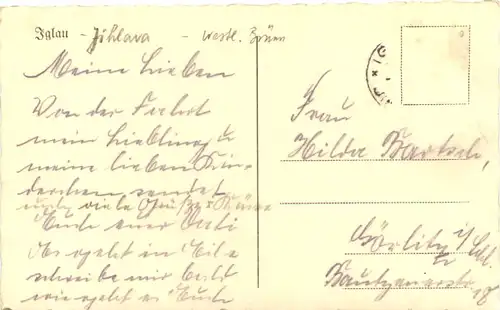 Iglau - Jihlava - westl. Brünn
Meine Lieben
Von der Fahrt
mein Liebling u
meine lieben Kin-
derchen sendet
euch viele Grüße u Küsse
Euch euer Vati
Es geht in Eile
schreibe mir bald
wie geht es Euch
Frau
Hilda Bartsch,
Görlitz i/Schl.
Bautzenerstr. 18